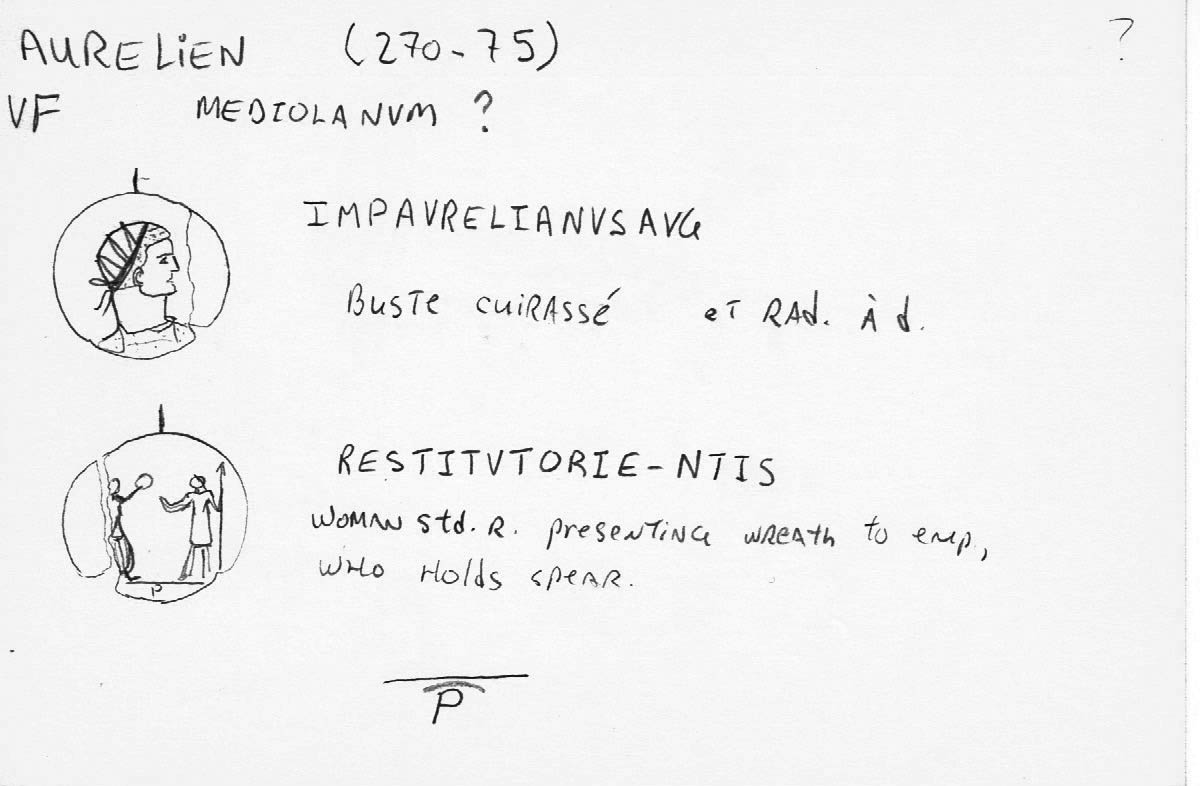 AURELiEN (270-75) ?
VF MEDIOLANVM ?
IMPAVRELIANVSAVG
BUSTE CUiRASSé eT RAd. À d.
RESTITVTORIE-NTIS
WOMAN Std. R. presenTiNG WREATh to emp.,
WHO HOlds SPEAR.
P
P